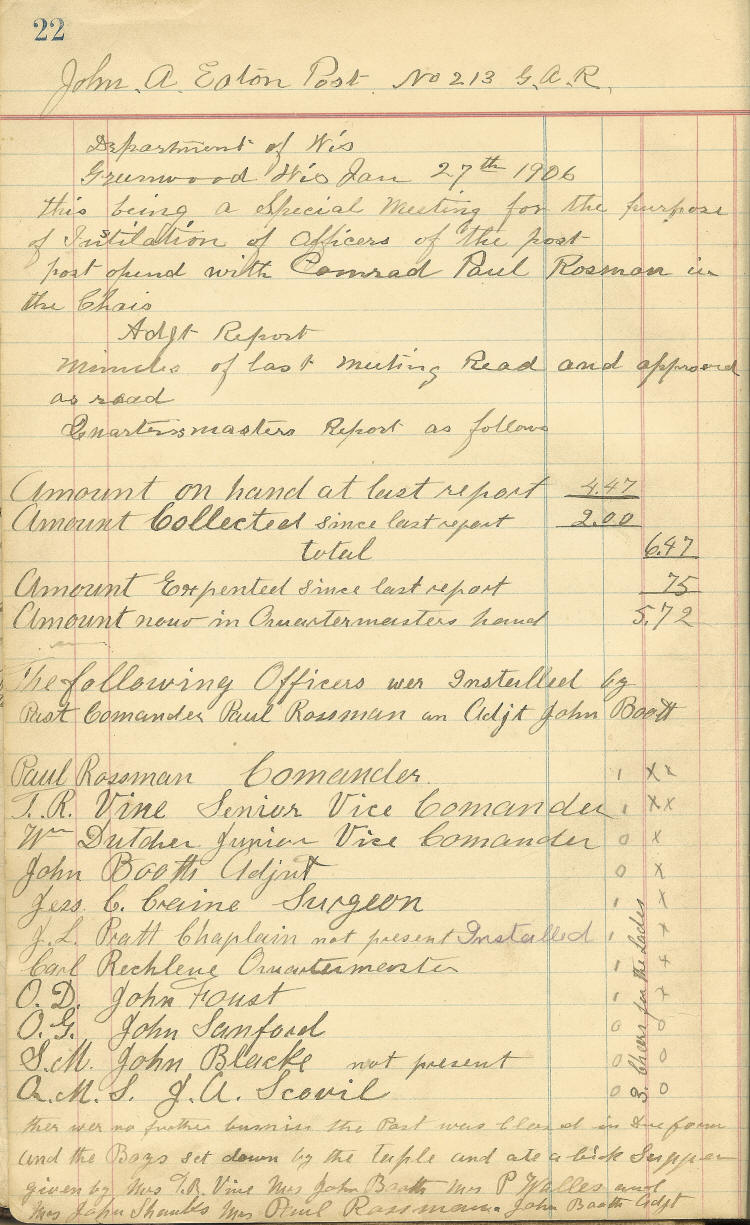 22
John. A. Eaton Post. No 213 G.A.R.
Department of Wis
Greenwood Wis Jan 27th 1906
this being a Special Meeting for the purpose
of Instilation of Officers of the post
post opend with Comrad Paul Rosman in
the Chair
Adgt Report
Minutes of last Meeting Read and approved
as read
Quartersmasters Report as follows
Amount on hand at last report 4.47
Amount Collected since last report 2.00
total 6.47
Amount Expented since last report 75
Amount now in Quartermasters hand 5.72
The following Officers wer Installed by
Past Comander Paul Rossman an Adjt John Booth
Paul Rossman Comander. 1 X x
T. R. Vine Senior Vice Comander 1 X X
Wm Dutcher Junior Vice Comander 0 x
John Booth Adjnt 0 x
Jess C. Craine Surgeon 1 x
J. L. Pratt Chaplain not present Installed 1 +
Carl Rechlene Quartermaster 1 +
O. D. John Foust 1 +
O. G. John Sanford 0 0
S. M. John Blacke not present 0 0
Q. M. S. J. A. Scovil 0 0
3. Cheers for the Ladies
ther wer no further busniss the Post was Closed in Due form
and the Boys set down by the taple and ate a Supper
given by Mrs T.R. Vine Mrs John Booth Mrs P Walles and
Mrs John Shanks Mrs Paul Rossman John Booth Adjt